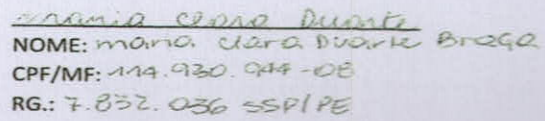 maria Clara Duarte
NOME: maria Clara Duarte Braga
CPF/MF: 114.930.944-08
RG.: 7.832.036 SSP/PE